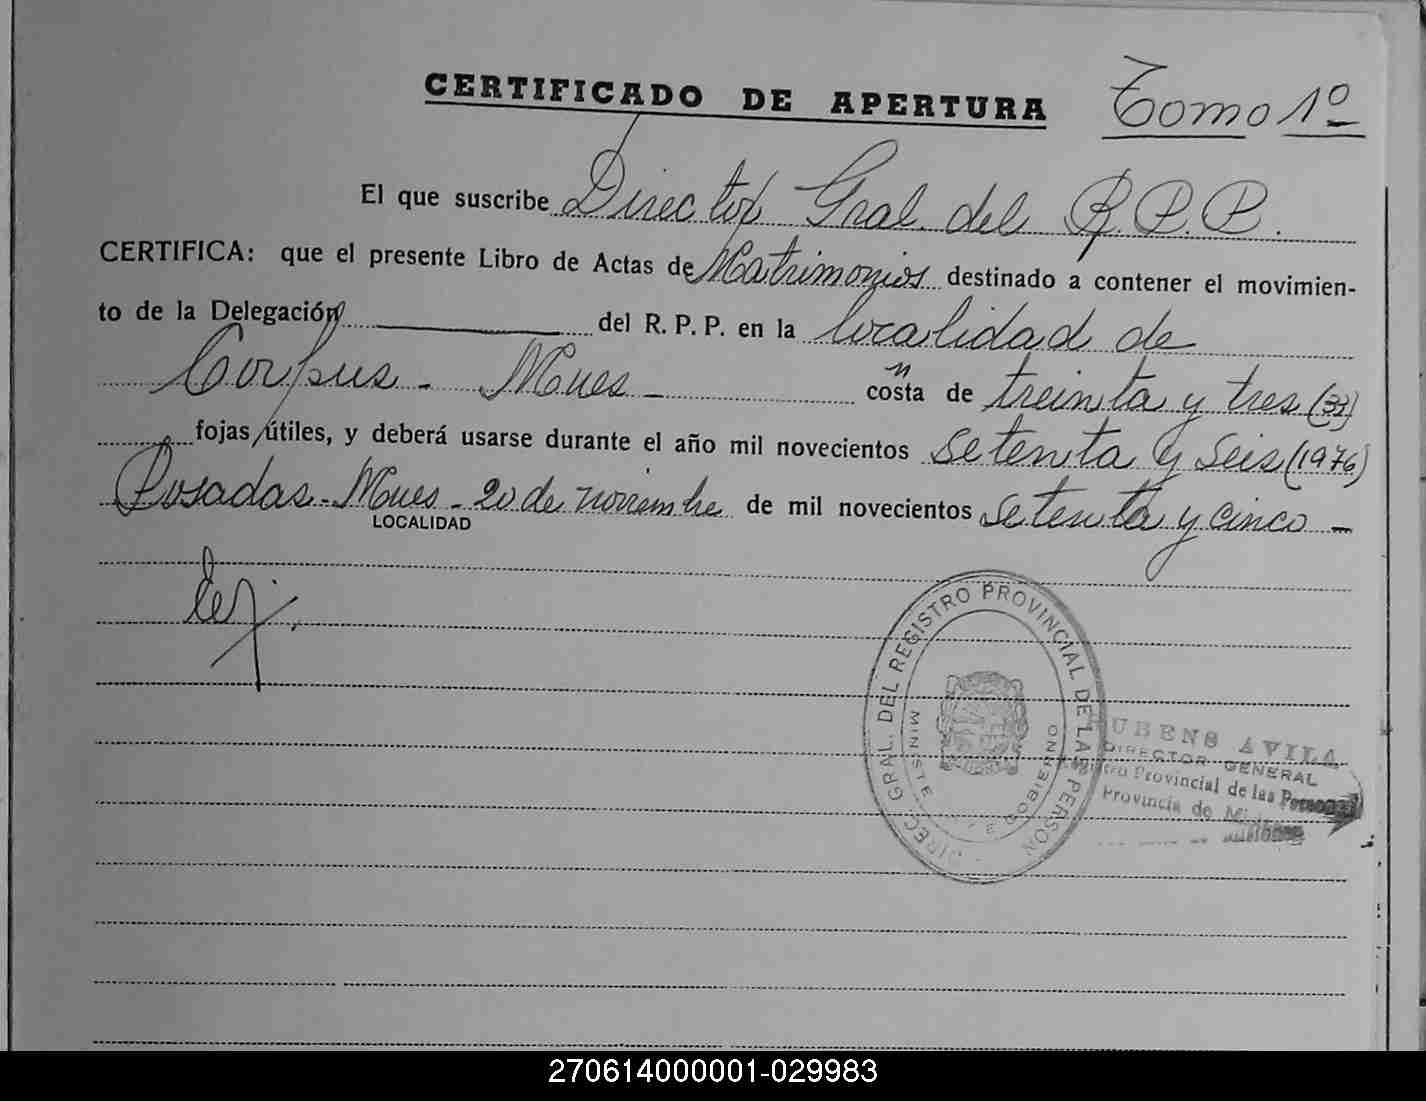 CERTIFICADO DE APERTURA Tomo 1º
El que suscribe Director Gral. del R.P.P.
CERTIFICA: que el presente Libro de Actas de Matrimonios destinado a contener el movimien-
to de la Delegación del R. P. P. en la localidad de
Corpus - Mnes - consta de treinta y tres (33)
fojas útiles, y deberá usarse durante el año mil novecientos setenta y seis (1976)
Posadas - Mnes - 20 de noviembre de mil novecientos setenta y cinco -
LOCALIDAD
DIREC. GRAL. DEL REGISTRO PROVINCIAL DE LAS PERSON
MINISTE DE GOBIERNO
RUBENS AVILA
DIRECTOR GENERAL
Registro Provincial de las Personas
Provincia de Misiones
270614000001-029983